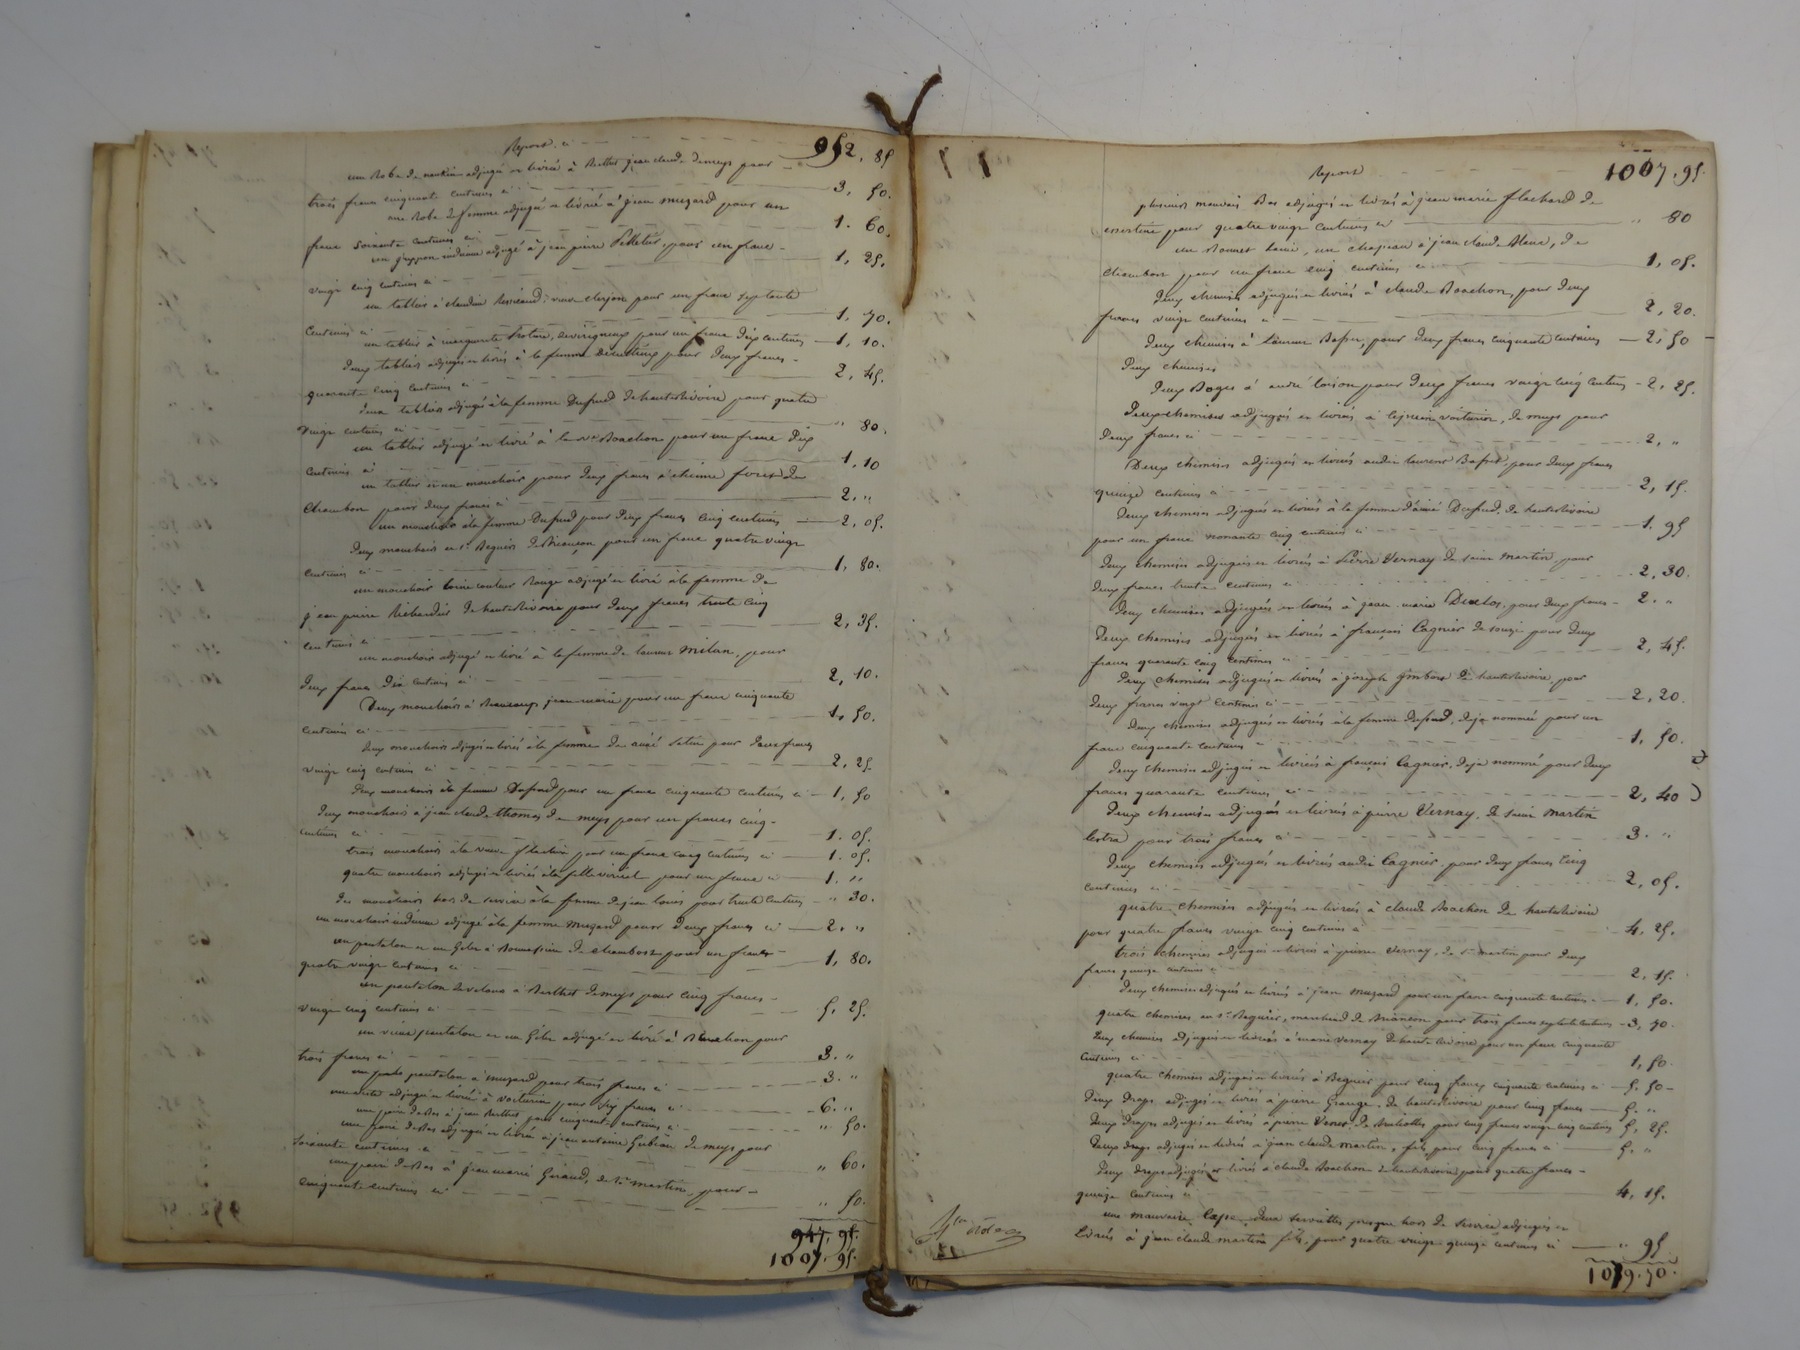 Report ci 952, 85
une Robe de nankin adjugé et livré à Berthet jean claude demeys pour
trois francs cinquante centimes ci 3, 50.
une Robe de femme adjugé et livré à jean muzard pour un
franc soixante centimes ci 1. 60.
un juppon indienne adjugé à jean pierre Pelletier, pour un franc
vingt cinq centimes ci 1, 25.
un tablier à claudine veuve pour un franc septante
centimes ci 1, 70.
un tablier à marguerite pour un franc dix centimes 1, 10.
deux tabliers adjugés et livrés à la femme pour deux francs
quarante cinq centimes ci 2, 45.
deux tabliers adjugés à la femme Dufrud de hauterivoire pour quatre
vingt centimes ci " 80.
un tablier adjugé et livré à la ve Boachon pour un franc dix
centimes ci 1, 10
un tablier et un mouchoir pour deux francs à étienne de
chambon pour deux francs ci 2. "
un mouchoir à la femme Dufrud pour deux francs cinq centimes 2, 05.
deux mouchoirs à Sr Begnier de Briançon pour un franc quatre vingt
centimes ci 1, 80.
un mouchoir couleur Rouge adjugé et livré à la femme de
jean pierre de hauterivoire pour deux francs trente cinq
centimes ci 2, 35.
un mouchoir adjugé et livré à la femme de laurent milan, pour
deux francs dix centimes ci 2, 10.
Deux mouchoirs à jean-marie pour un franc cinquante
centimes ci 1, 50.
deux mouchoirs adjugés et livrés à la femme de pour deux francs
vingt cinq centimes ci 2, 25
deux mouchoirs à la femme Dufrud pour un franc cinquante centimes ci 1, 50
deux mouchoirs à jean claude thomas de meys pour un francs cinq
centimes ci 1. 05.
trois mouchoirs à la veuve pour un franc cinq centimes ci 1. 05.
quatre mouchoirs adjugés et livrés à la fille pour un franc ci 1. "
des mouchoirs hors de service à la femme de jean louis pour trente centimes " 30.
un mouchoir indienne adjugé à la femme Muzard pour deux francs ci 2. "
un pantalon et un gilet à de chambost pour un franc
quatre vingt centimes ci 1, 80.
un pantalon de velours à Berthet demeys pour cinq francs
vingt cinq centimes ci 5, 25.
un vieux pantalon et un gilet adjugé et livré à Boachon pour
trois francs ci 3. "
un pantalon à muzard pour trois francs ci 3. "
adjugé et livrée à voiturier pour six francs ci 6. "
une paire de Bas à jean Berthet pour cinquante centimes ci " 50.
une paire de Bas adjugé et livrée à jean antoine de meys pour
soixante centimes ci " 60.
une paire de Bas à jean marie Giraud, de St martin, pour
cinquante centimes ci " 50.
947, 95.
1007. 95.
Report 1007, 95.
plusieurs mauvais Bas adjugés et livrés à jean marie flachard de
essertine pour quatre vingt centimes ci " 80
un Bonnet, un chapeau à jean claude, de
chambon pour un franc cinq centimes ci 1, 05.
deux chemises adjugées et livrées à claude Boachon, pour deux
francs vingt centimes ci 2, 20.
deux chemises à laurent Bafier, pour deux francs cinquante centimes 2, 50
deux chemises
deux à andré loison pour deux francs vingt cinq centimes 2, 25.
deux chemises adjugées et livrées à voiturier, de meys pour
deux francs ci 2, "
Deux chemises adjugées et livrées audit laurent Bafier, pour deux francs
quinze centimes ci 2, 15.
deux chemises adjugées et livrées à la femme Dufrud, de hauterivoire
pour un franc nonante cinq centimes ci 1. 95
deux chemises adjugées et livrées à Pierre Vernay de saint martin pour
deux francs trente centimes ci 2, 30.
deux chemises adjugées et livrées à jean marie Duclos, pour deux francs 2. "
deux chemises adjugées et livrées à françois Cagnier de pour deux
francs quarante cinq centimes ci 2, 45.
deux chemises adjugées et livrées à joseph de hauterivoire, pour
deux francs vingt centimes ci 2, 20.
deux chemises adjugées et livrées à la femme Dufrud, déja nommée pour un
franc cinquante centimes 1, 50.
deux chemises adjugées et livrées à françois Cagnier, déja nommé pour deux
francs quarante centimes ci 2, 40
deux chemises adjugées et livrées à pierre Vernay, de saint martin
lestra pour trois francs ci 3. "
deux chemises adjugées et livrées audit Cagnier pour deux francs cinq
centimes ci 2, 05.
quatre chemises adjugées et livrées à claude Boachon de hauterivoire
pour quatre francs vingt cinq centimes ci 4, 25.
trois chemises adjugées et livrées à pierre Vernay, de St martin pour deux
francs quinze centimes ci 2, 15.
deux chemises adjugées et livrées à jean muzard pour un franc cinquante centimes 1, 50.
quatre chemises au Sr Begnier, marchand de Briançon pour trois francs septante centimes 3, 70.
deux chemises adjugées et livrées à marie vernay de haute rivoire pour un franc cinquante
centimes ci 1, 50.
quatre chemises adjugées et livrées à Begnier pour cinq francs cinquante centimes ci 5. 50
deux draps adjugés et livrés à pierre Grange, de hauterivoire pour cinq francs 5. "
deux draps adjugés et livrés à pierre de pour cinq francs vingt cinq centimes 5, 25.
deux draps adjugés et livrés à jean claude martin, fils, pour cinq francs ci 5, "
deux draps adjugés et livrés à claude Boachon de hauterivoire pour quatre francs
quinze centimes ci 4, 15.
une mauvaise, deux serviettes presque hors de service adjugées et
livrées à jean claude martin fils, pour quatre vingt quinze centimes ci " 95
1079. 70.